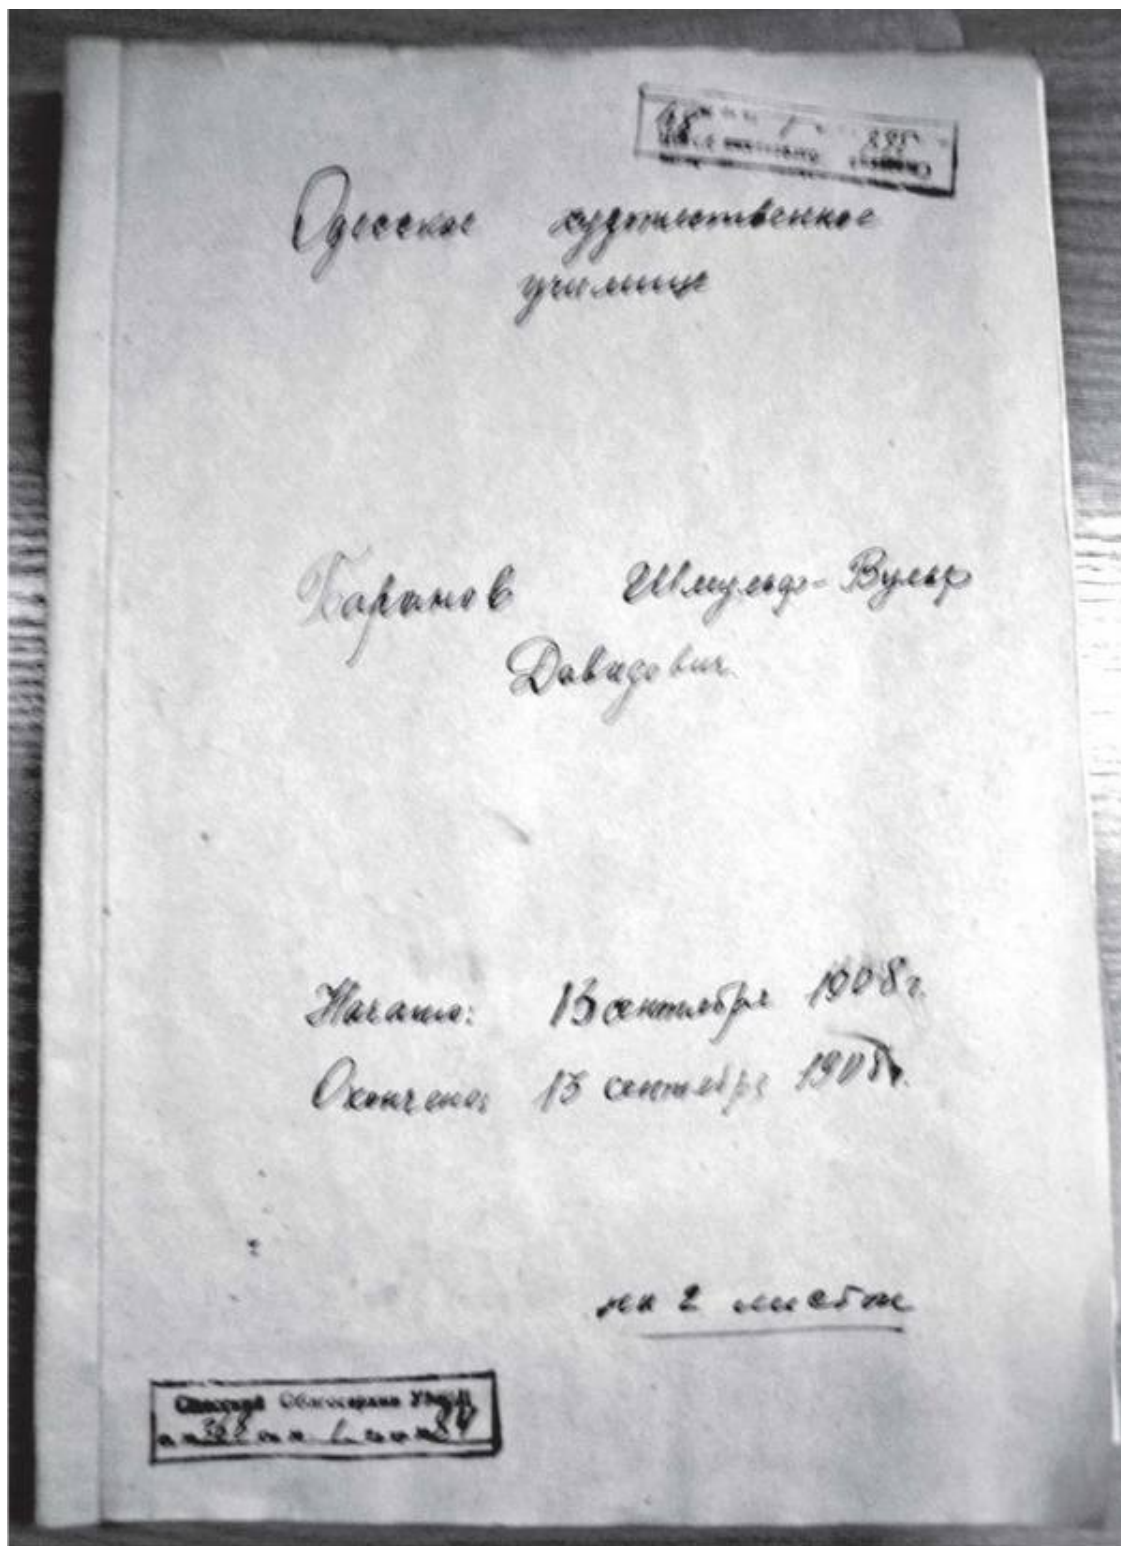 Одесское художественное
училище
Баранов Шмульф-Вульф
Давидович.
Начато: 13 сентября 1908 г.
Окончено: 13 сентября 1908 г.
на 2 листах
Одесский Облгосархив